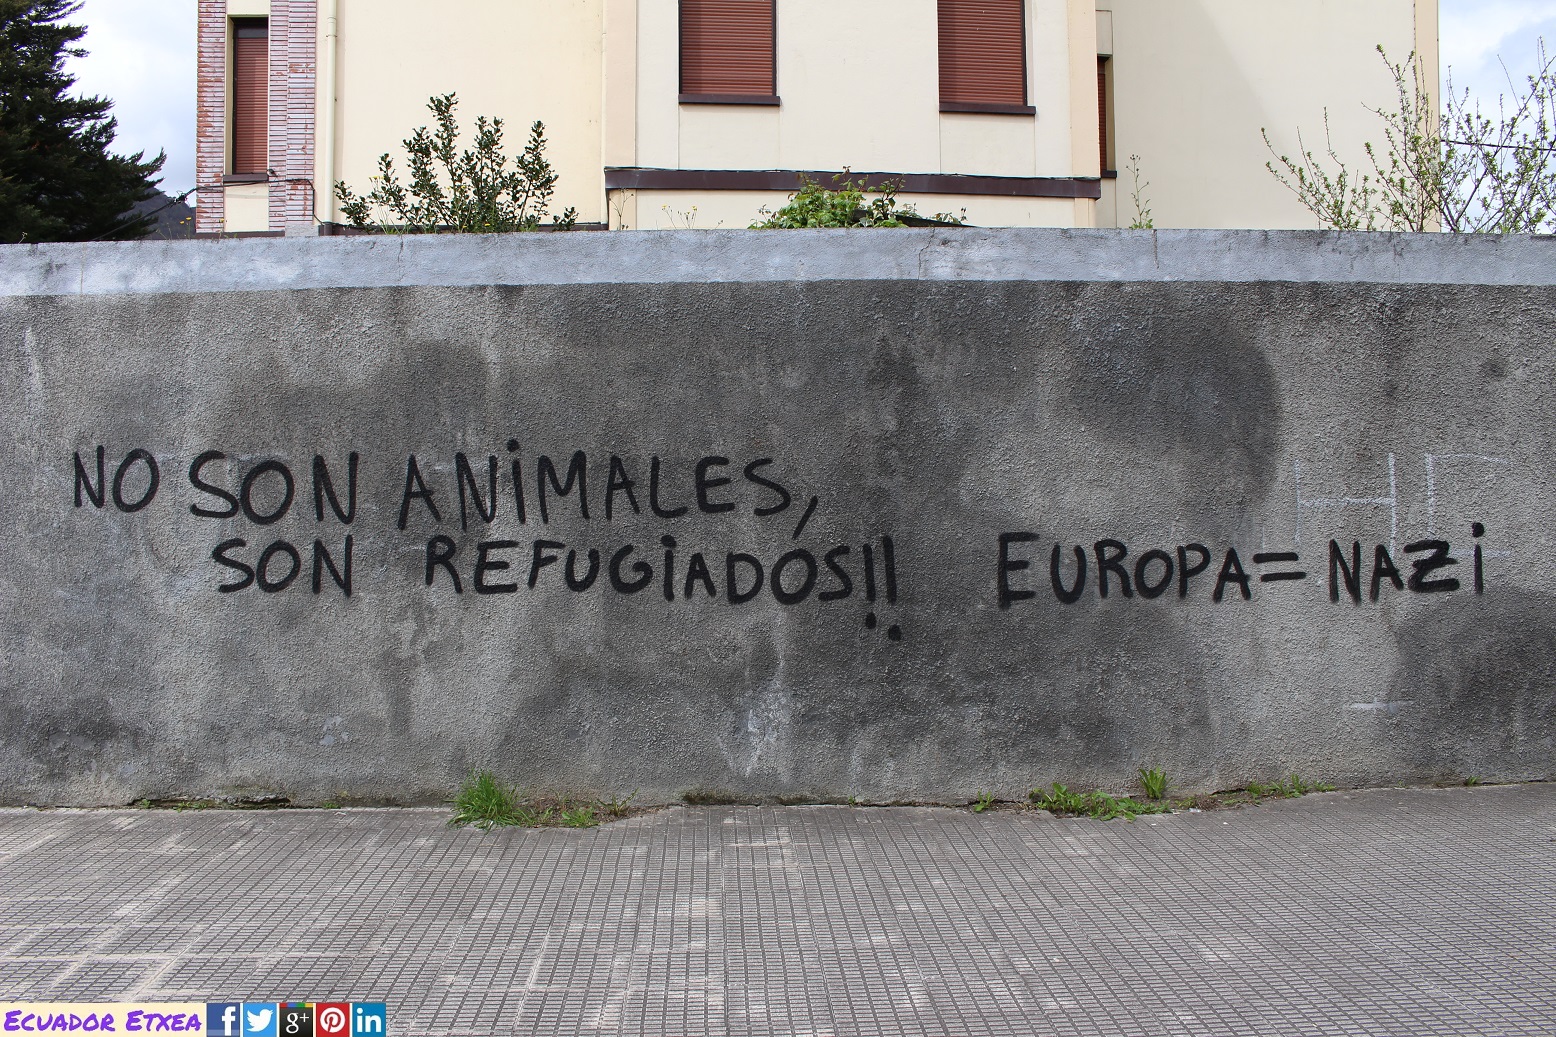 NO SON ANiMALES,
SON REFUGiADOS!!
EUROPA = NAZi
Ecuador Etxea
f g+ in